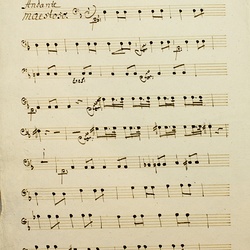 Andante
maestoso.